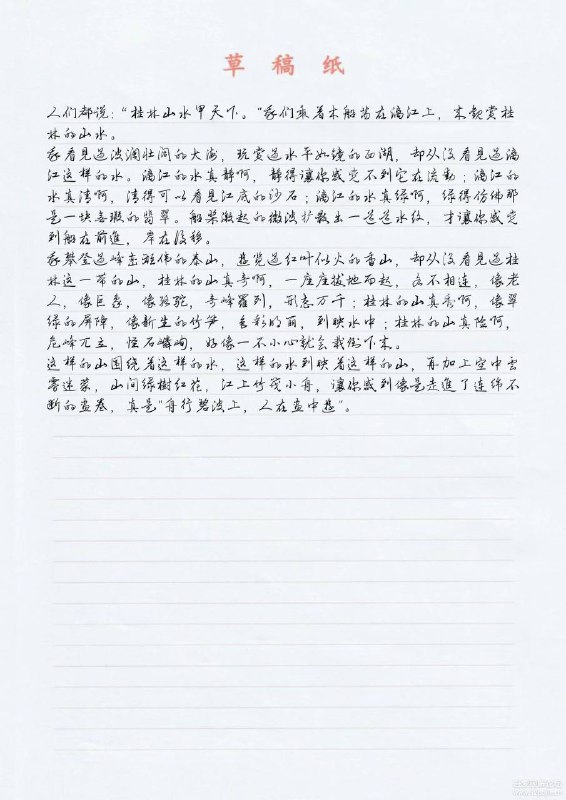 草稿纸
人们都说：“桂林山水甲天下。”我们乘着木船荡在漓江上，来观赏桂
林的山水。
我看见过波澜壮阔的大海，玩赏过水平如镜的西湖，却从没看见过漓
江这样的水。漓江的水真静啊，静得让你感受不到它在流动；漓江的
水真清啊，清得可以看见江底的沙石；漓江的水真绿啊，绿得仿佛那
是一块无瑕的翡翠。船桨激起的微波扩散出一道道水纹，才让你感觉
到船在前進，岸在後移。
我攀登过峰峦雄伟的泰山，遊览过红叶似火的香山，却从没看见过桂
林这一带的山，桂林的山真奇啊，一座座拔地而起，各不相连，像老
人，像巨象，像骆驼，奇峰羅列，形态万千；桂林的山真秀啊，像翠
绿的屏障，像新生的竹笋，色彩明丽，倒映水中；桂林的山真险啊，
危峰兀立，怪石嶙峋，好像一不小心就会栽倒下来。
这样的山围绕着这样的水，这样的水倒映着这样的山，再加上空中雲
雾迷蒙，山间绿樹红花，江上竹筏小舟，讓你感到像是走進了连绵不
断的畫卷，真是“舟行碧波上，人在畫中遊”。